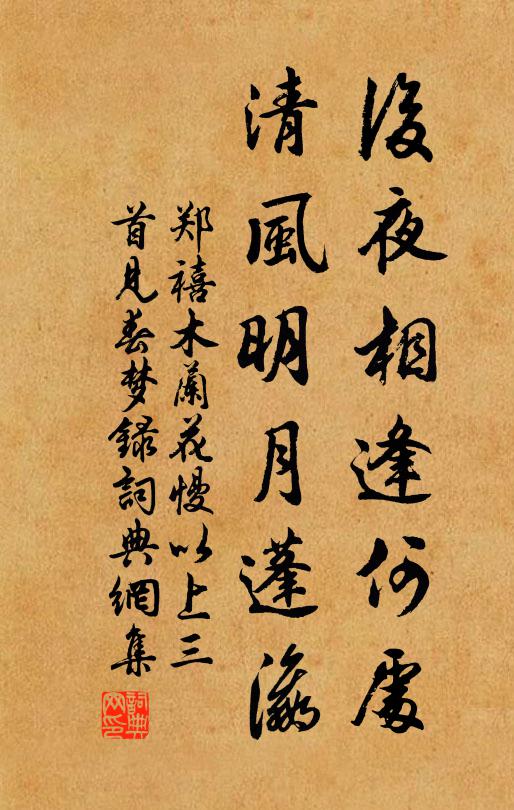 後夜相逢何處
清風明月蓬瀛
郑禧木蘭花慢以上三
首見春梦録詞典網集
詞典网印